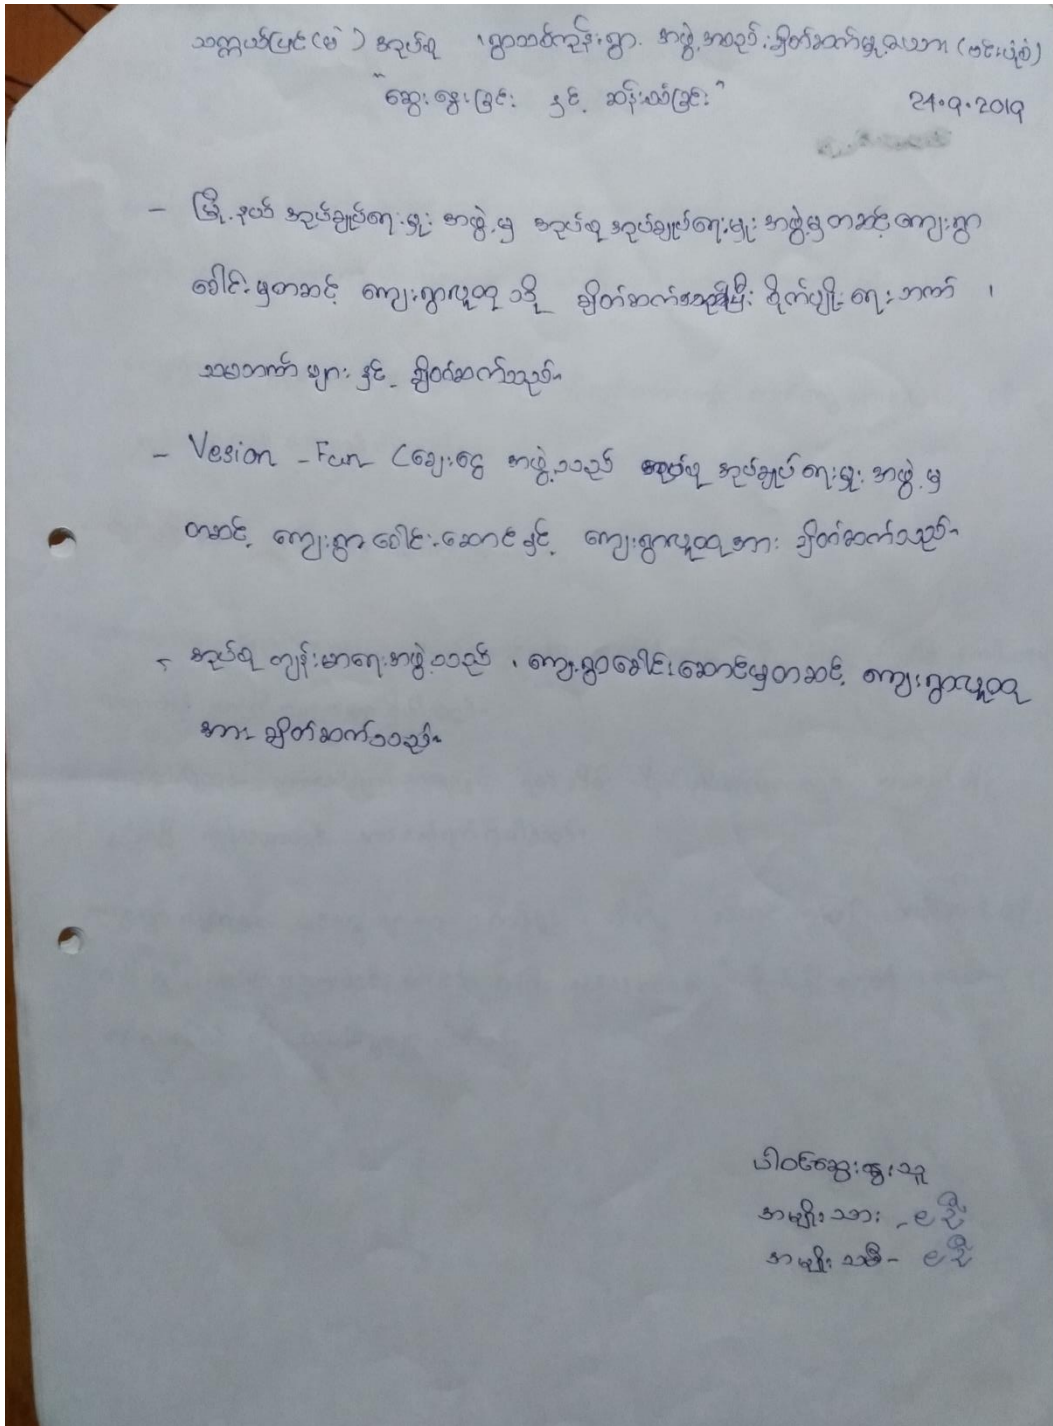 သက္ကယ်ပြင်(မဲ) အုပ်စု ၊ ရွာသစ်ကုန်းရွာ. အဖွဲ့အစည်းချိတ်ဆက်မှုဇယား (ဗင်းပုံစံ)
"ဆွေးနွေးခြင်း နှင့် ဆန်းသစ်ခြင်း"
24.9.2019
- မြို့နယ် အုပ်ချုပ်ရေးမှူး အဖွဲ့မှ အုပ်စု အုပ်ချုပ်ရေးမှူး အဖွဲ့မှတဆင့် ကျေးရွာ
ခေါင်းမှတဆင့် ကျေးရွာလူထု သို့ ချိတ်ဆက် စိုက်ပျိုးရေးဘဏ် ၊
သမဘဏ် များ နှင့် ချိတ်ဆက်သည်။
- Vesion - Fun (ချေးငွေ အဖွဲ့သည် အုပ်စု အုပ်ချုပ်ရေးမှူး အဖွဲ့မှ
တဆင့် ကျေးရွာခေါင်းဆောင်နှင့် ကျေးရွာလူထုအား ချိတ်ဆက်သည်။
- အုပ်စု ကျန်းမာရေးအဖွဲ့သည် ၊ ကျေးရွာခေါင်းဆောင်မှတဆင့် ကျေးရွာလူထု
အား ချိတ်ဆက်သည်။
ပါဝင်ဆွေးနွေးသူ
အမျိုးသား - ၉ ဦး
အမျိုးသမီး - ၉ ဦး